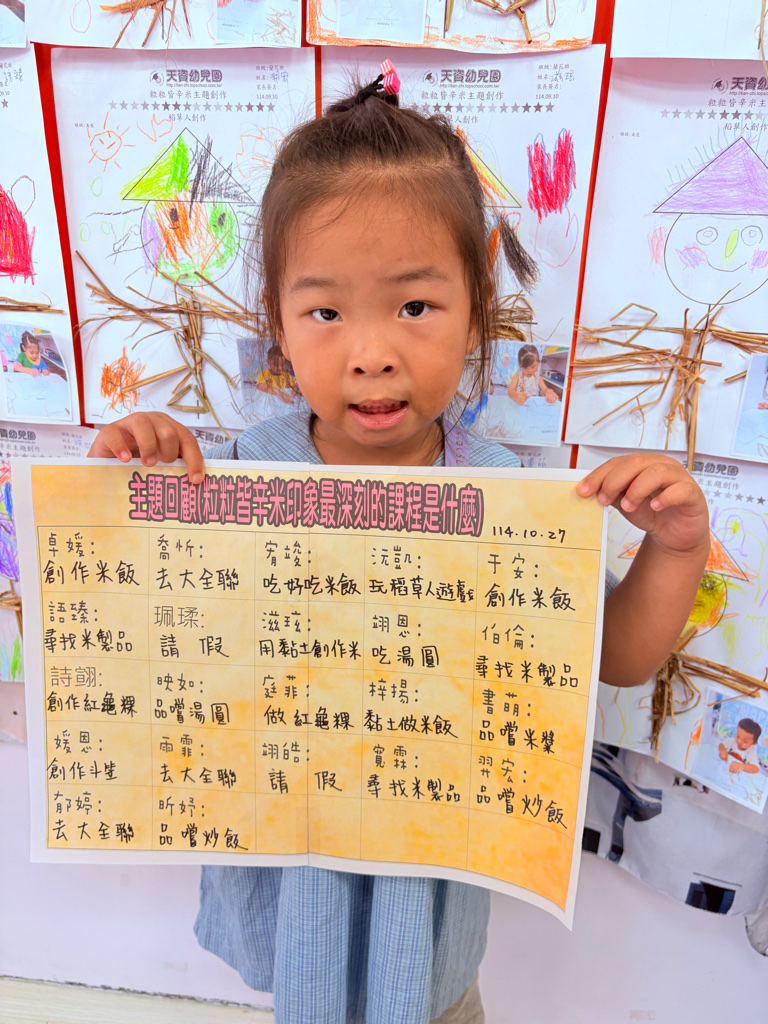 天資幼兒園
114.09.10
粒粒皆辛米主題創作
稻草人創作
天資幼兒園
114.09.10
粒粒皆辛米主題創作
天資幼
粒粒皆辛米主題
稻草人創作
主題回顧(粒粒皆辛米印象最深刻的課程是什麼)
114.10.27
卓媛:
創作米飯
喬忻:
去大全聯
宥竣:
吃好吃米飯
沅凱:
玩稻草人遊戲
于安:
創作米飯
語臻:
尋找米製品
珮瑈:
請假
滋玹:
用黏土創作米
翊恩:
吃湯圓
伯倫:
尋找米製品
詩翩:
創作紅龜粿
映如:
品嚐湯圓
庭菲:
做紅龜粿
梓揚:
黏土做米飯
書萌:
品嚐米漿
媛恩:
創作斗笠
雨霏:
去大全聯
翊皓:
請假
寬霖:
尋找米製品
羿宏:
品嚐炒飯
郁婷:
去大全聯
昕妤:
品嚐炒飯